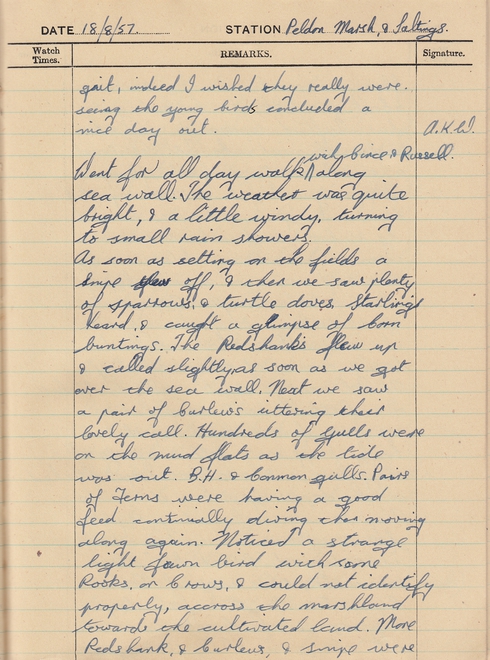 DATE 18/8/57. STATION Peldon Marsh, & Saltings.
Watch Times. REMARKS. Signature.
gait, indeed I wished they really were.
seing the young birds concluded a
nice day out.
A.K.W.
with Circe & Russell.
Went for all day walk along
sea wall. The weather was quite
bright, & a little windy, turning
to small rain showers.
As soon as setting on the fields a
snipe flew off, & then we saw plenty
of sparrows, & turtle doves, Starlings
heard, & caught a glimpse of corn
buntings. The Redshanks flew up
& called slightly, as soon as we got
over the sea wall. Next we saw
a pair of Curlews uttering their
lovely call. Hundreds of Gulls were
on the mud flats as the tide
was out. B.H. & Common gulls. Pairs
of Terns were having a good
feed continually diving then moving
along again. Noticed a strange
light fawn bird with some
Rooks, or Crows, & could not identify
properly, accross the marshland
towards the cultivated land. More
Redshank, & Curlews, & snipe were